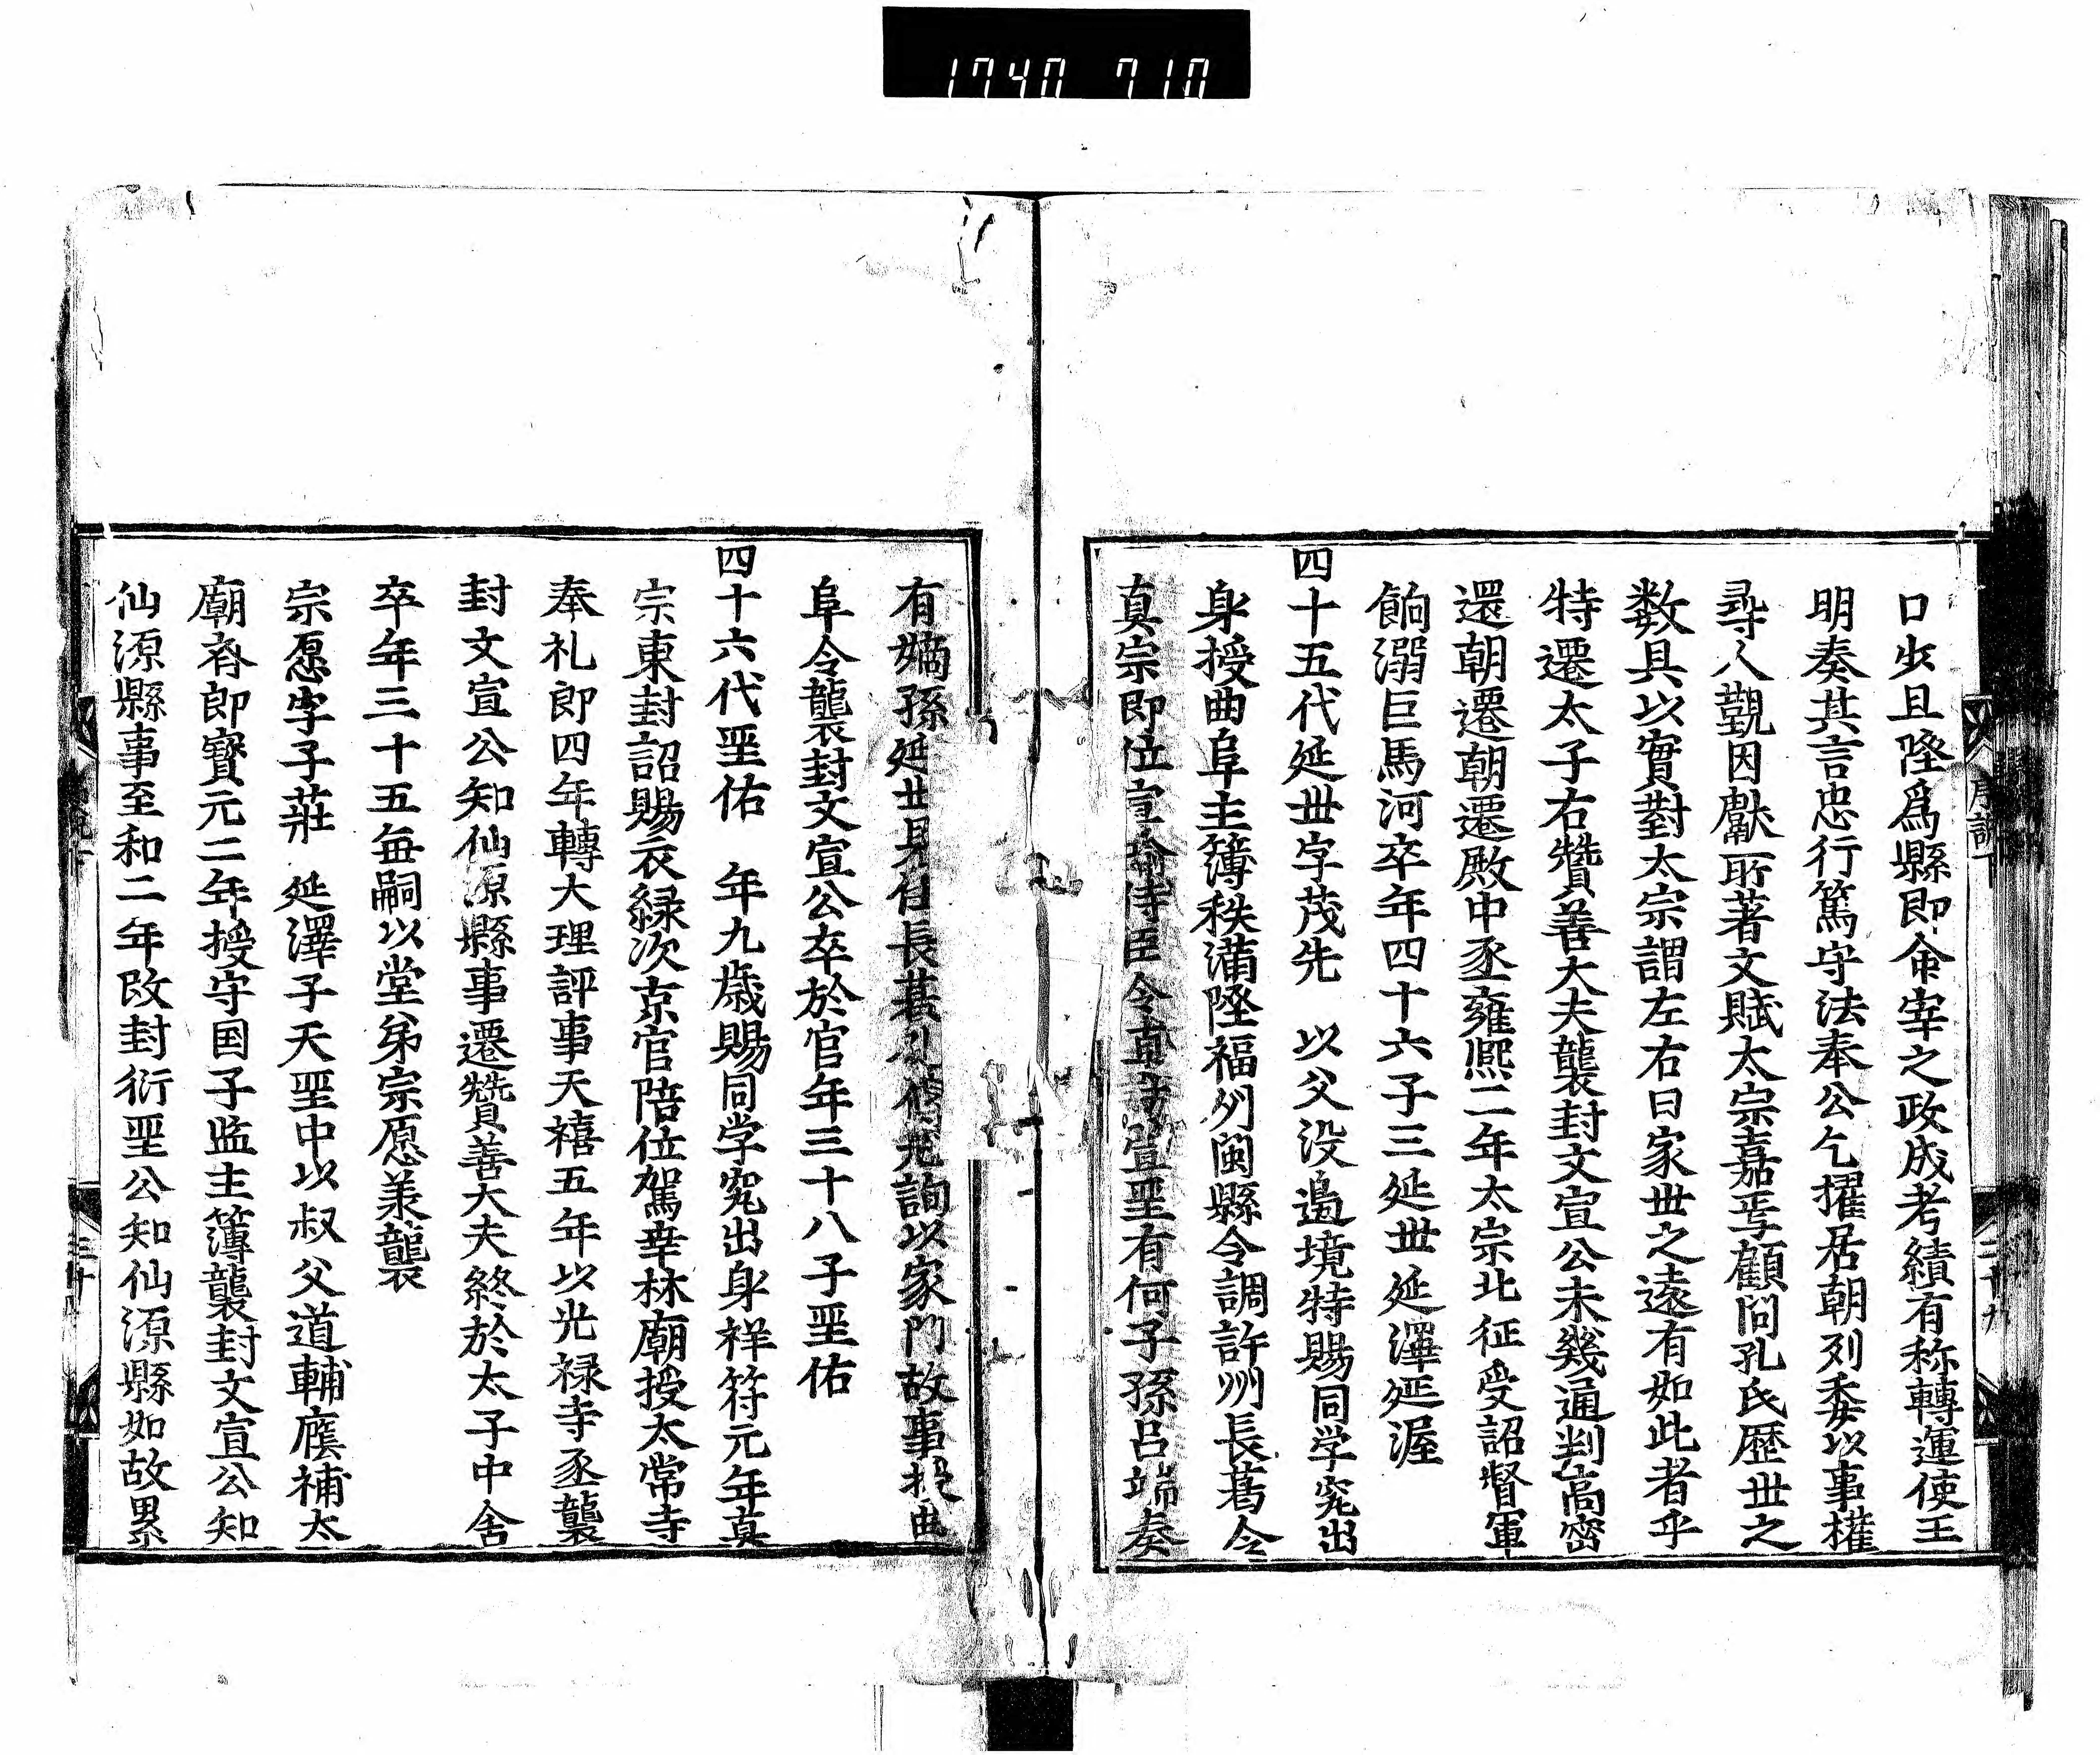 1740 710
口出且陞爲縣即命宰之政成考績有称轉運使王
明奏其言忠行篤守法奉公乞擢居朝列委以事權
尋入觐因獻所著文賦太宗嘉焉顧問孔氏歴丗之
数具以實對太宗謂左右曰家丗之遠有如此者乎
特遷太子右贊善大夫襲封文宣公未幾通判高密
還朝遷朝遷殿中丞雍熈二年太宗北征受詔督軍
餉溺巨馬河卒年四十六子三延丗延澤延渥
四十五代延丗字茂先 以父没邉境特賜同学究出
身授曲阜主簿秩滿陞福州閩縣令調許州長葛令
真宗即位宣諭侍臣令宣聖有何子孫吕端奏
有嫡孫延丗見任長葛詢以家門故事授曲
阜令襲封文宣公卒於官年三十八子聖佑
四十六代聖佑 年九歳賜同学究出身祥符元年真
宗東封詔賜衣緑次京官陪位駕幸林廟授太常寺
奉礼郎四年轉大理評事天禧五年以光禄寺丞襲
封文宣公知仙源縣事遷贊善大夫終於太子中舎
卒年三十五毎嗣以堂弟宗愿羕襲
宗愿字子莊 延澤子天聖中以叔父道輔廕補太
廟斉郎寳元二年授守国子监主簿襲封文宣公知
仙源縣事至和二年改封衍聖公知仙源縣如故累
三十